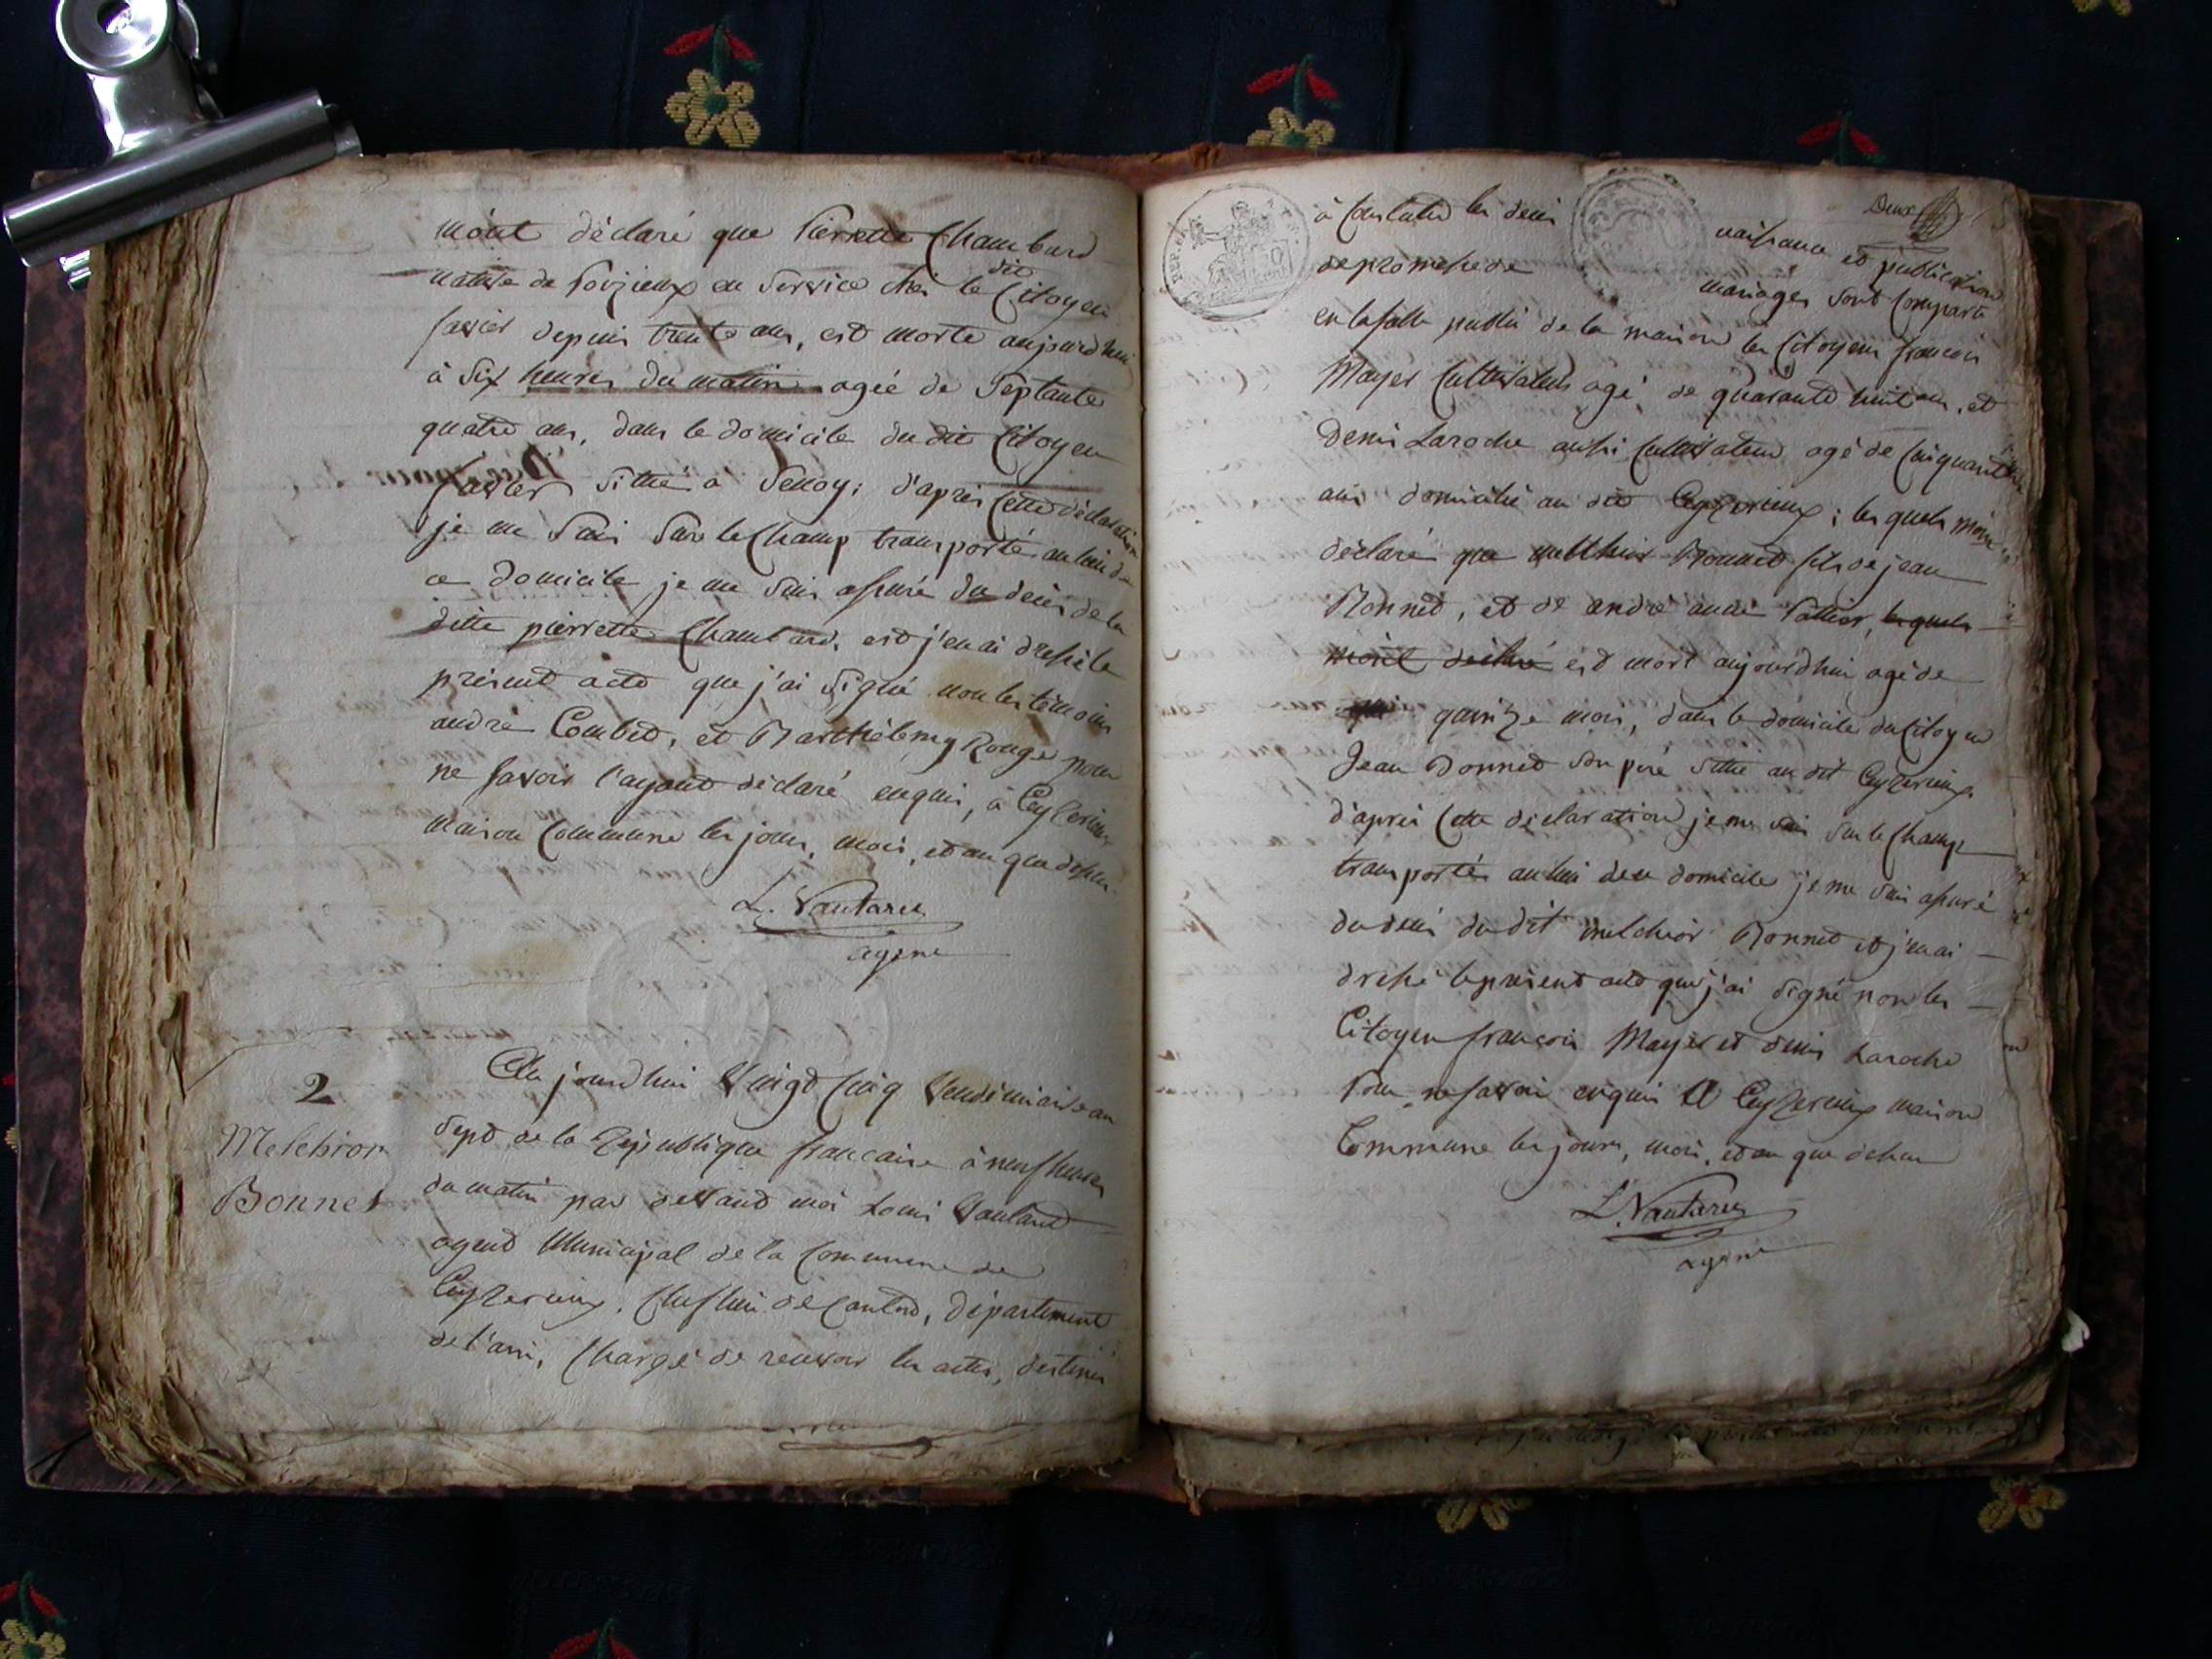 m'ont déclaré que Pierrette Chambard
native de Poizieux en service chez le dit Citoyen
favier depuis trente ans, est morte aujourd'hui
à six heures du matin agée de Septante
quatre ans, dans le domicile du dit Citoyen
favier Sittué a Senoy; d'après Cette déclaration
je me suis sur le Champ transporté au lieu de
ce domicile je me suis assuré du décès de la
ditte pierrette Chambard, est j'en ai dressé le
présent acte que j'ai signé non les témoins
andré Combet, et Barthélemy Rouge pour
ne savoir l'ayant déclaré enquis, à Ceyzerieux
maison Commune les jours, mois, et an que dessus
L. Vautaret
agent
2
Melchior
Bonnet
Au jourd'hui Vingt Cinq Vendémiaire an
sept de la République francaise à neuf heures
du matin par devand moi Louis Vautaret
agend Municipal de la Commune de
Ceyzerieux, Chef lieu de Canton, Département
de l'ain, Chargé de recevoir les actes, destinés
Deux
à Constater les décès naissance et publication
de promesse de mariages sont Comparu
en la salle public de la maison les Citoyens francois
Mayer Cultivateur agé de quarante huit ans, et
Denis Laroche aussi Cultivateur agé de Cinquante
ans domicilié au dit Ceyzerieux; les quels m'ont
déclaré que Bonnet fils de jean
Bonnet, et de andré les quels
m'ont déclaré est mort aujourd'hui agé de
quinze mois, dans le domicile du Citoyen
Jean Bonnet son peré sittué au dit Ceyzerieux
d'après Cette déclaration je me suis sur le Champ
transporté au lieu de ce domicile je me suis assuré
du décès du dit melchior Bonnet et j'en ai
dressé le présent acte que j'ai signé non les
Citoyen francois Mayer et denis Laroche
pour ne savoir enquis A Ceyzerieux maison
Commune les jours, mois, et an que dessus
L. Vautaret
agent